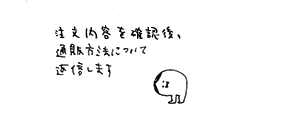 注文内容を確認後、
通販方法について
返信します